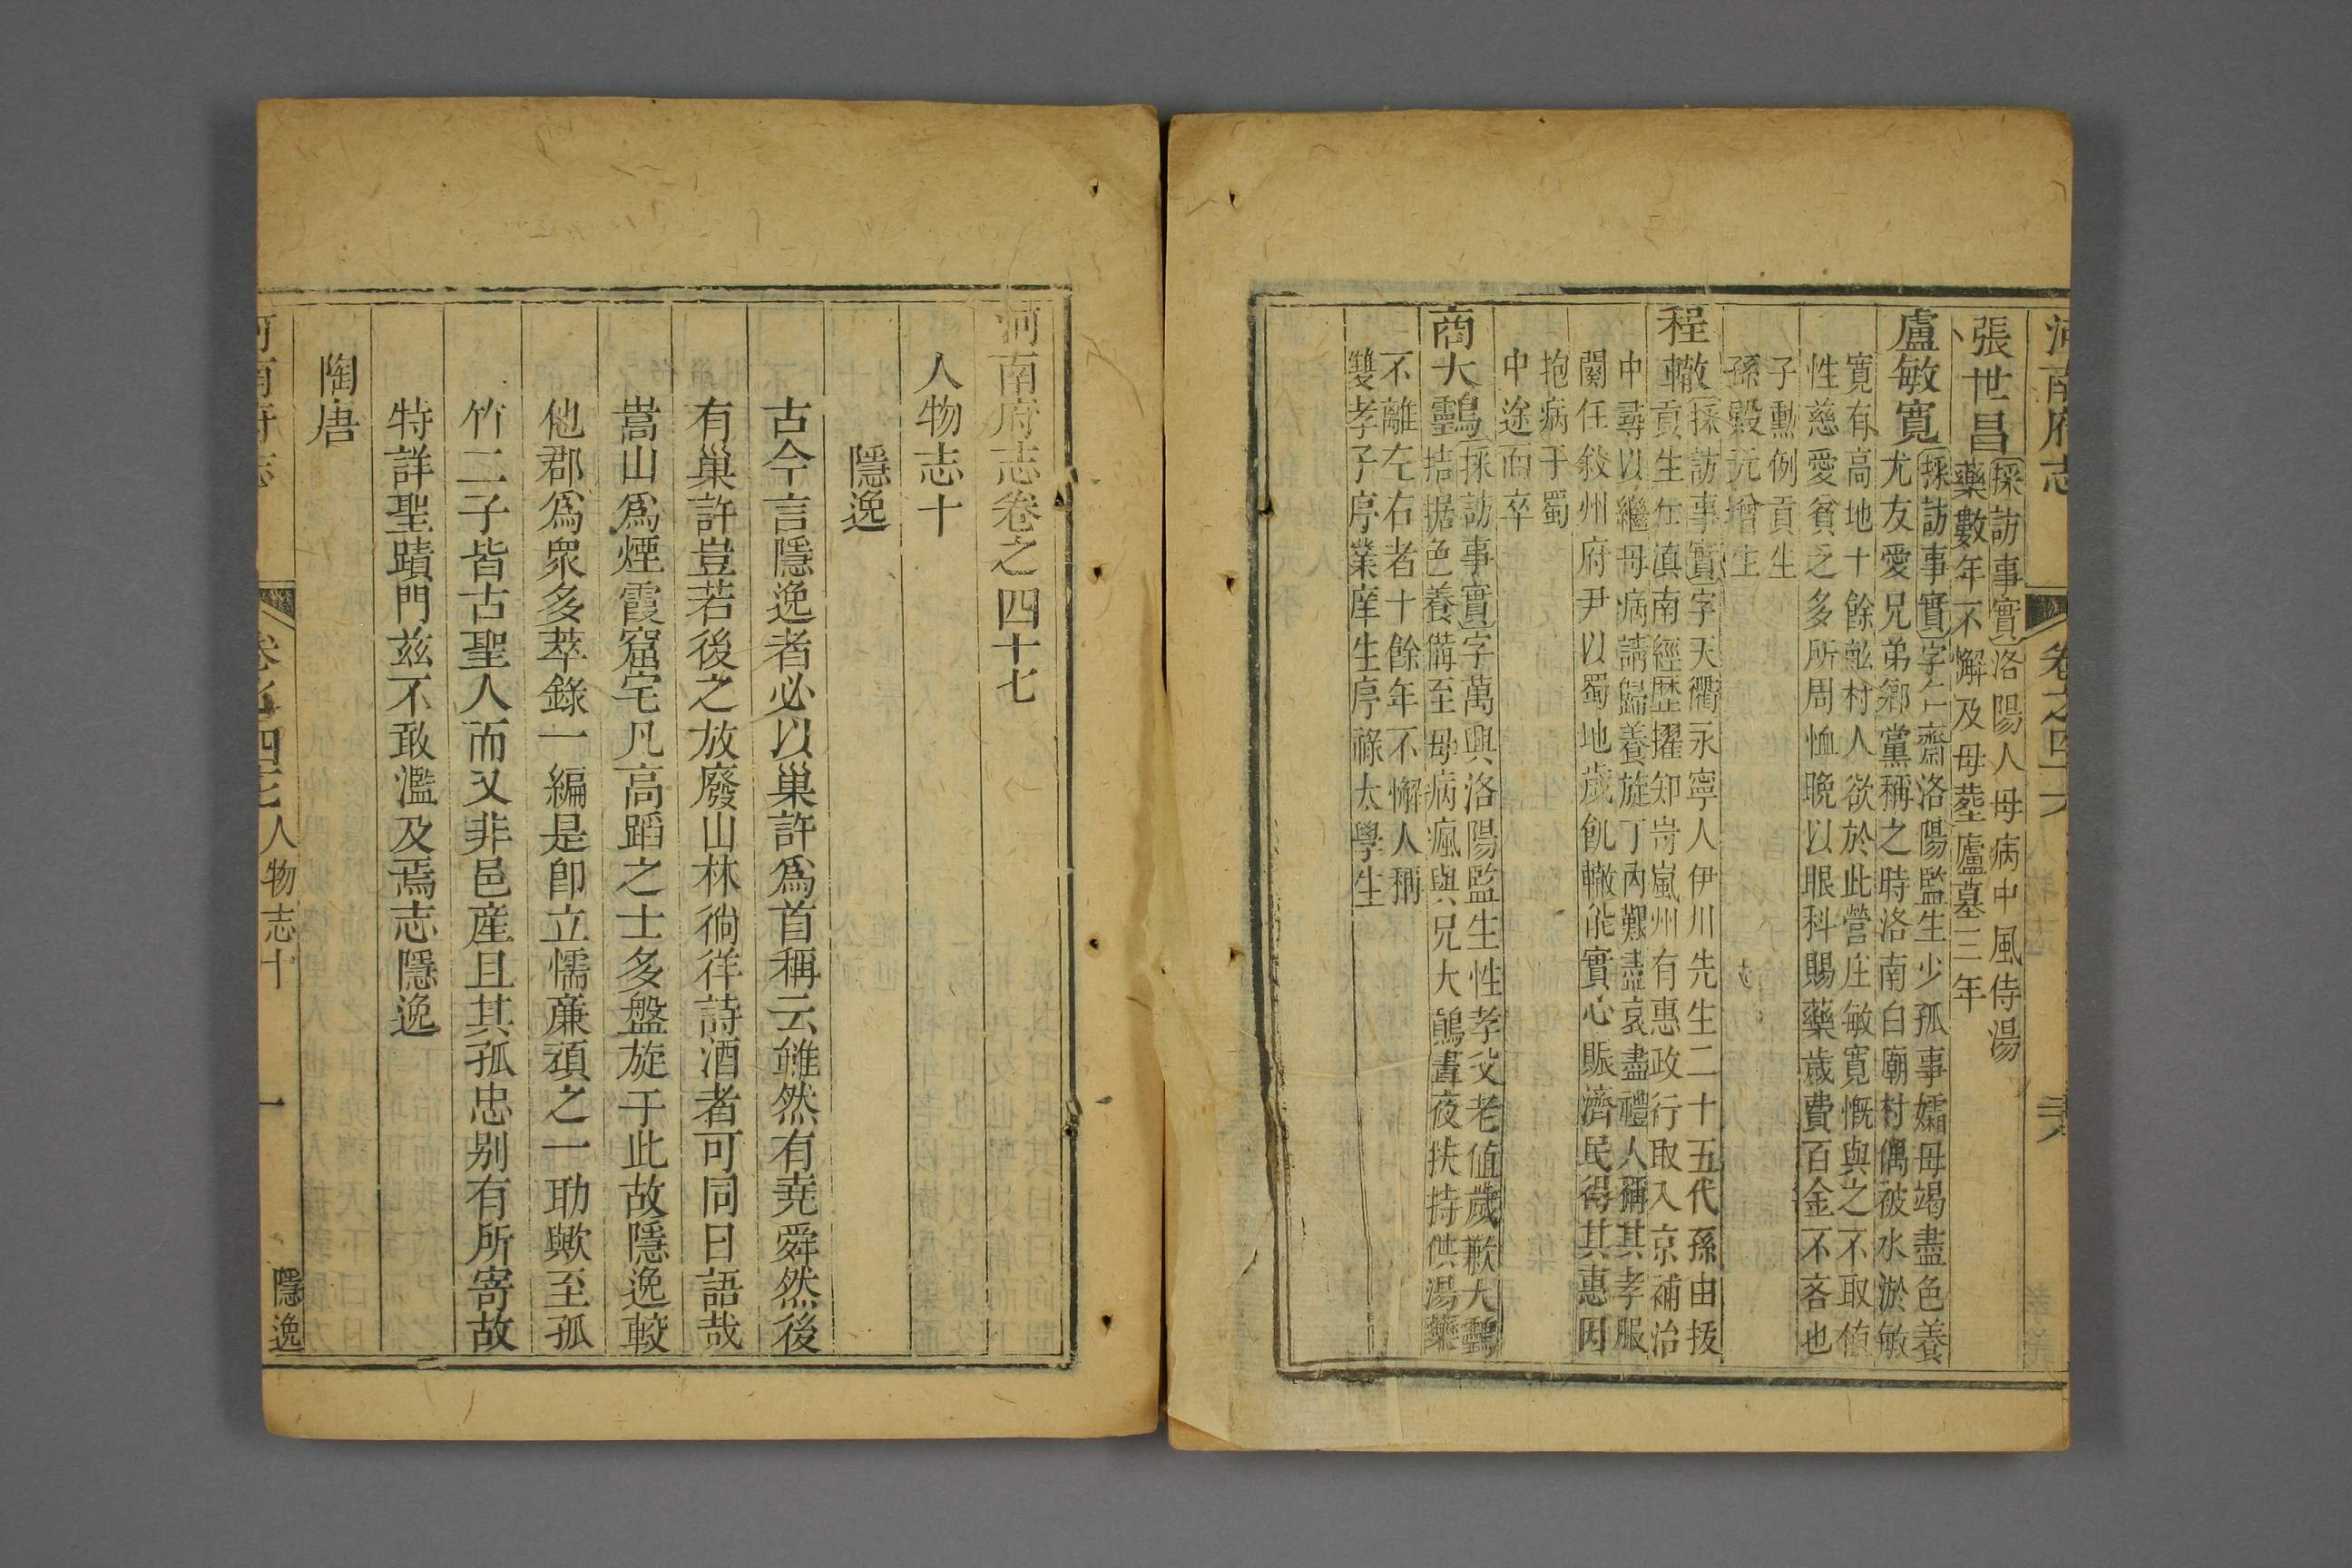 河南府志
卷之四十六
張世昌
採訪事實洛陽人母病中風侍湯
藥數年不懈及母塟廬墓三年
盧敏寛
採訪事實字仁齋洛陽監生少孤事孀母竭盡色養
尤友愛兄弟鄉黨稱之時洛南白廟村偶被水淤敏
寛有高地十餘畝村人欲於此營庄敏寛慨與之不取值
性慈愛貧乏多所周恤晩以眼科賜藥歲費百金不吝也
子勳例貢生
孫毅元增生
程轍
採訪事實字天衢永寧人伊川先生二十五代孫由拔
貢生任滇南經歴擢知岢嵐州有惠政行取入京補治
中尋以繼母病請歸養旋丁內艱盡哀盡禮人稱其孝服
闋任敘州府尹以蜀地歲飢轍能實心賑濟民得其惠因
抱病于蜀
中途而卒
商大鸖
採訪事實字萬興洛陽監生性孝父老值歲歉大鸖
拮据色養備至母病瘋與兄大鵑晝夜扶持供湯藥
不離左右者十餘年不懈人稱
雙孝子序業庠生序祿太學生
河南府志卷之四十七
人物志十
隱逸
古今言隱逸者必以巢許為首稱云雖然有堯舜然後
有巢許豈若後之放廢山林徜徉詩酒者可同日語哉
嵩山為煙霞窟宅凡高蹈之士多盤旋于此故隱逸較
他郡為衆多萃錄一編是卽立懦亷頑之一助歟至孤
竹二子皆古聖人而又非邑産且其孤忠别有所寄故
特詳聖蹟門兹不敢濫及焉志隱逸
陶唐
河南府志
卷之四十七
人物志十
一
隱逸